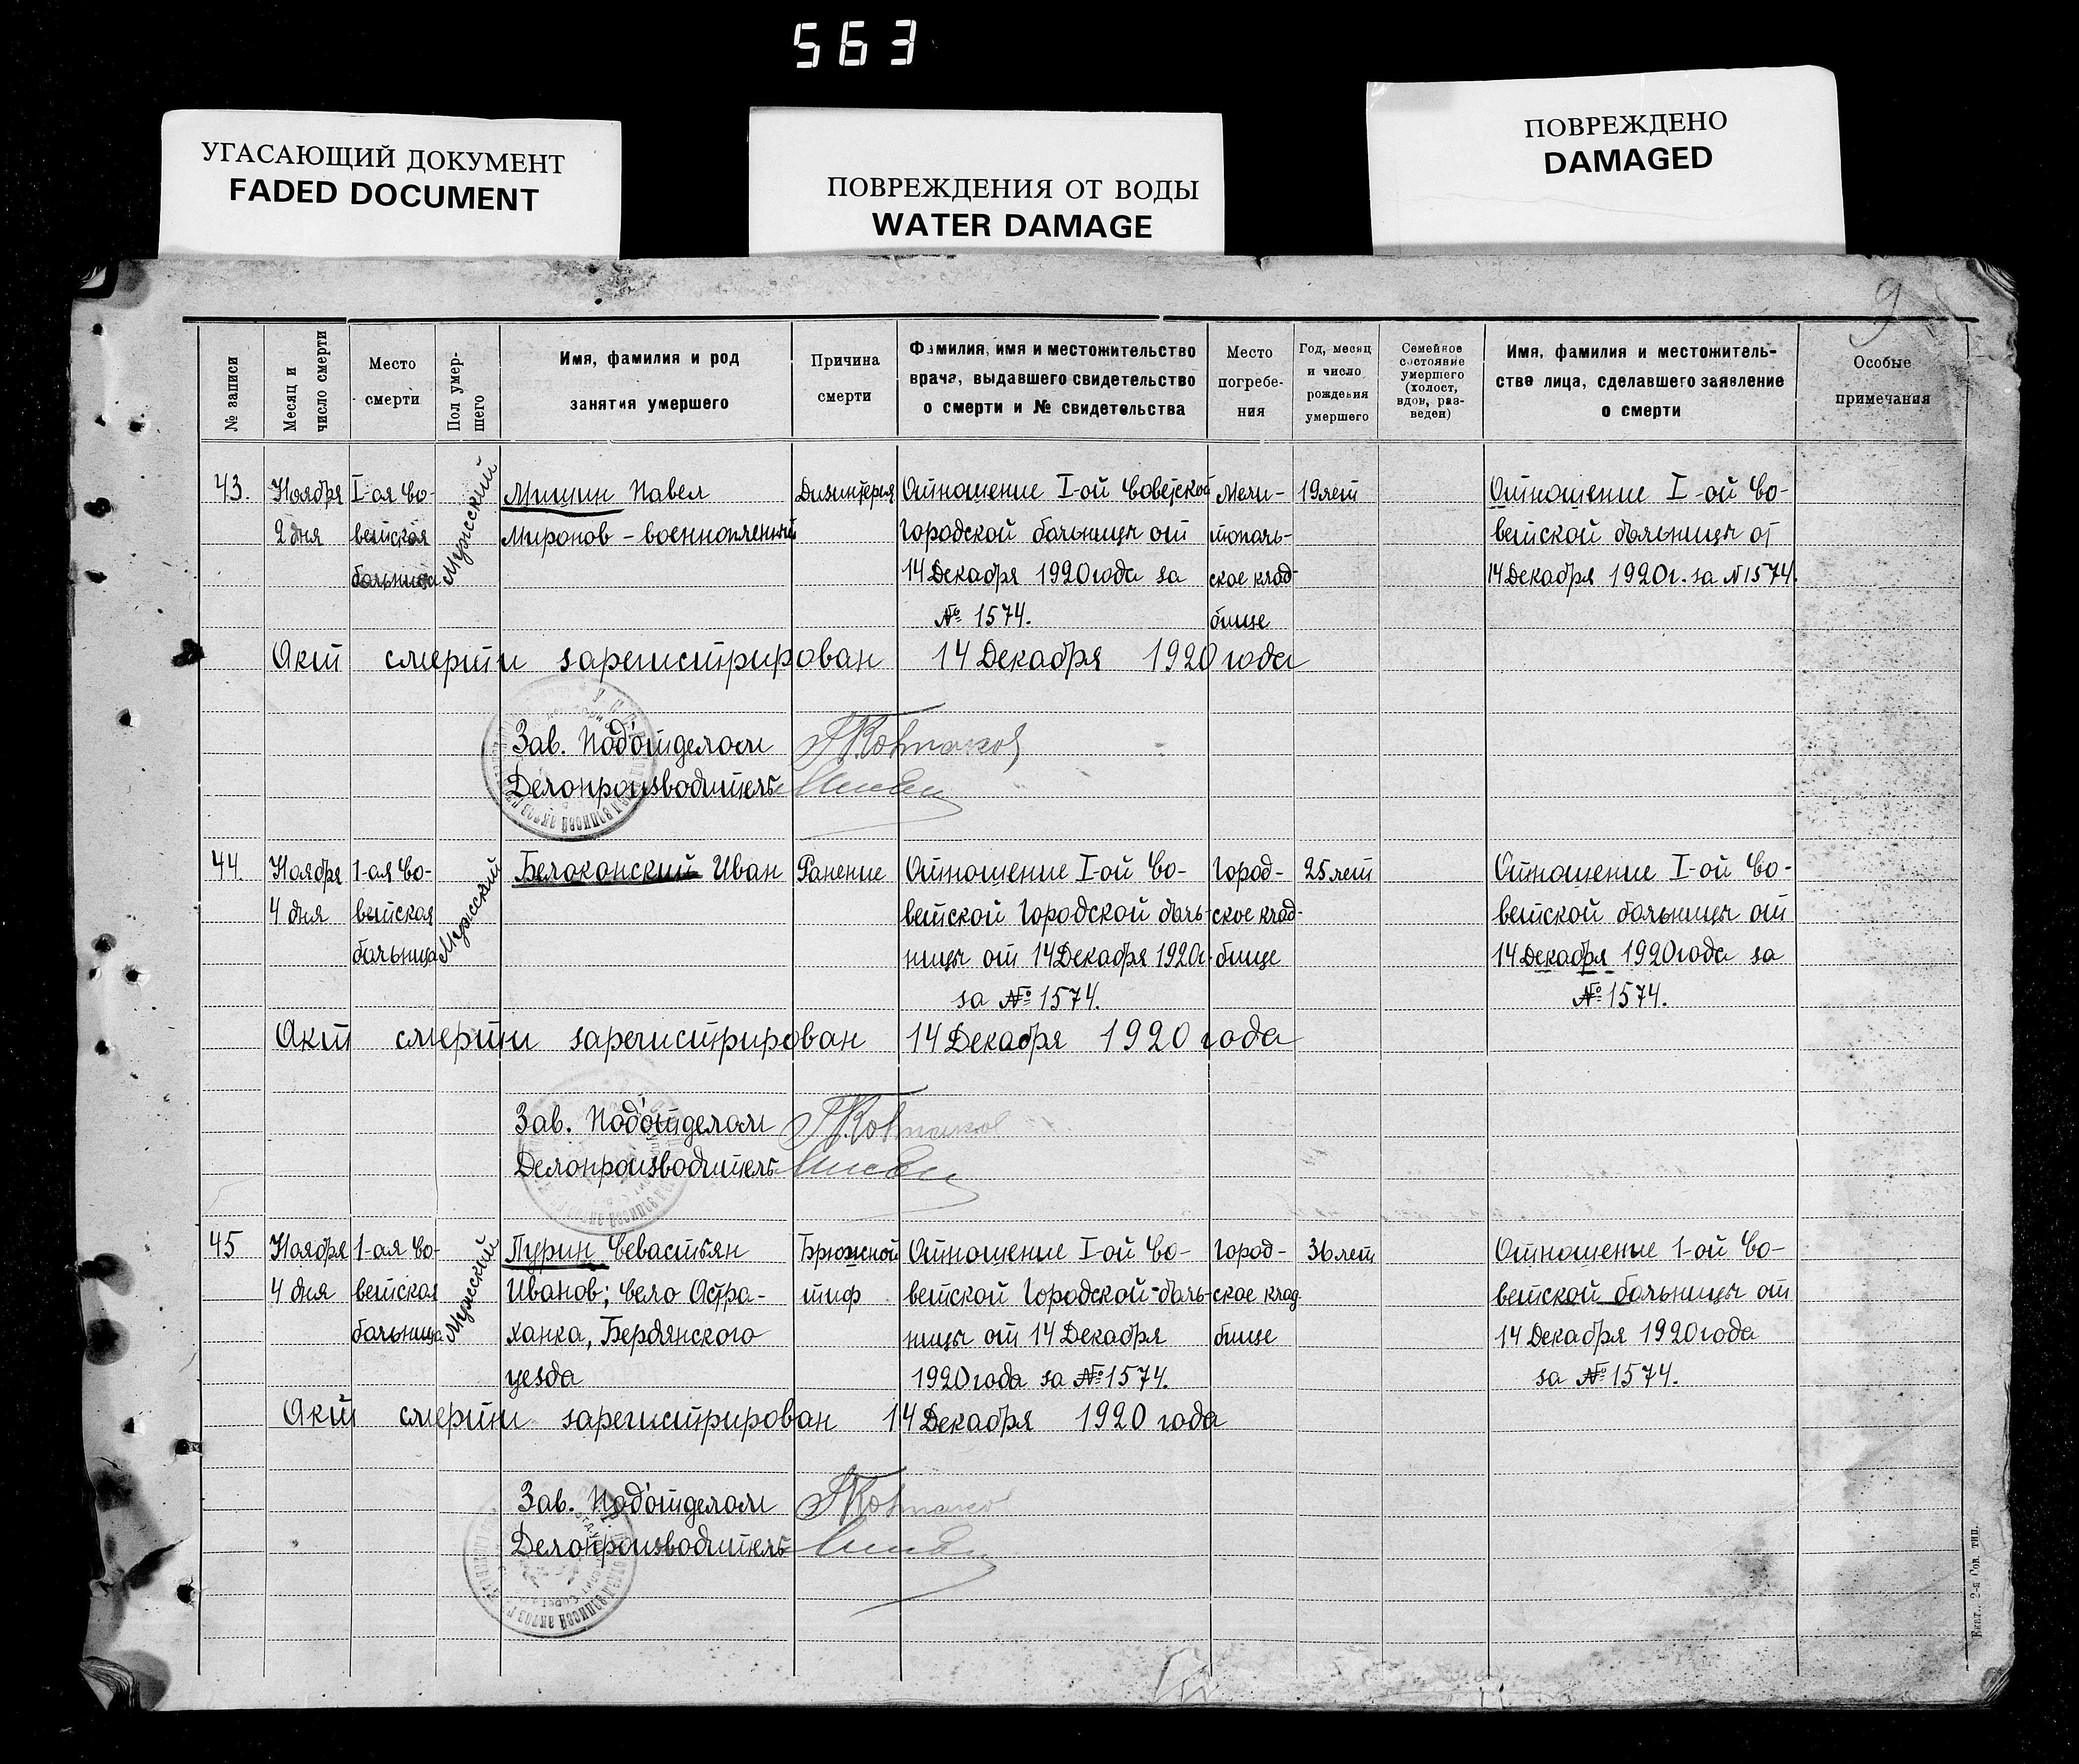 563
УГАСАЮЩИЙ ДОКУМЕНТ
FADED DOCUMENT
ПОВРЕЖДЕНИЯ ОТ ВОДЫ
WATER DAMAGE
ПОВРЕЖДЕНО
DAMAGED
9
№ записи
Месяц и число смерти
Место смерти
Пол умершего
Имя, фамилия и род
занятия умершего
Причина
смерти
Фамилия, имя и местожительство
врача, выдавшего свидетельство
о смерти и № свидетельства
Место
погребе-
ния
Год, месяц
и число
рождения
умершего
Семейное
состояние
умершего
(холост,
вдов, раз-
веден)
Имя, фамилия и местожитель-
ство лица, сделавшего заявление
о смерти
Особые
примечания
43. Ноября I-ая Со- Мужсский Мишин Павел Дизинтерия Отношение I-ой Советской Мели- 19 лет Отношение I-ой Со-
2 дня ветская Миронов - военнопленный городской больницы от тополь- ветской больницы от
больница 14 Декабря 1920 года за ское клад- 14 Декабря 1920 г. за № 1574.
№ 1574. бище
Акт смерти зарегистрирован 14 Декабря 1920 года
Зав. Подотделом
Делопроизводитель
44. Ноября 1-ая Со- Мужсский Белоконский Иван Ранение Отношение I-ой Со- Город- 25 лет Отношение I-ой Со-
4 дня ветская ветской Городской боль- ское клад- ветской больницы от
больница ницы от 14 Декабря 1920 г. бище 14 Декабря 1920 года за
за № 1574. № 1574.
Акт смерти зарегистрирован 14 Декабря 1920 года
Зав. Подотделом
Делопроизводитель
45 Ноября 1-ая Со- Мужсский Пурин Севастьян Брюжной Отношение I-ой Со- Город- 36 лет Отношение 1-ой Со-
4 дня ветская Иванов; Село Астра- тиф ветской Городской боль- ское клад ветской больницы от
больница ханка, Бердянского ницы от 14 Декабря бище 14 Декабря 1920 года
уезда 1920 года за № 1574. за № 1574.
Акт смерти зарегистрирован 14 Декабря 1920 года
Зав. Подотделом
Делопроизводитель